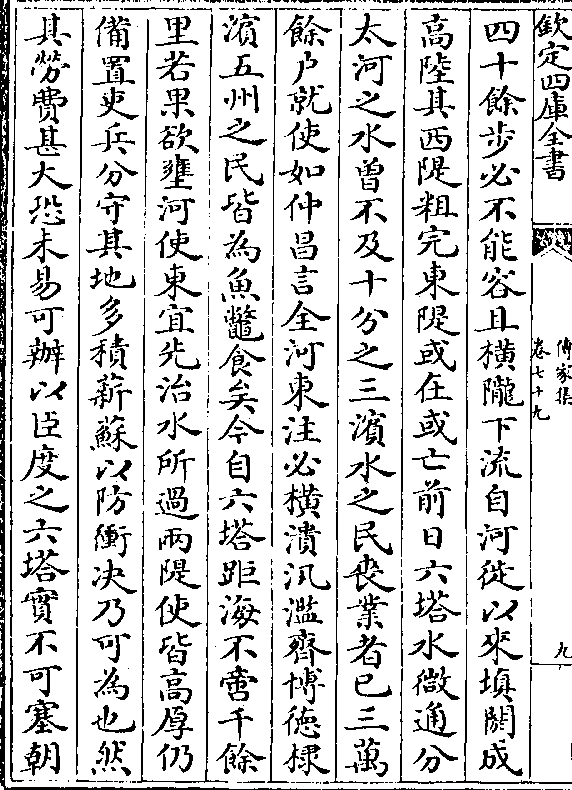 欽定四庫全書
傳家集
卷七十九
九
四十餘步必不能容且橫隴下流自河徙以來填闕成
高陸其西隄粗完東隄或在或亡前日六塔水微通分
太河之水曾不及十分之三濱水之民喪業者已三萬
餘户就使如仲昌言全河東注必橫潰汎濫齊博德棣
濱五州之民皆為魚鼈食矣今自六塔距海不啻千餘
里若果欲壅河使東宜先治水所過兩隄使皆高厚仍
備置吏兵分守其地多積薪蘇以防衝決乃可為也然
其勞費甚大恐未易可辦以臣度之六塔實不可塞朝